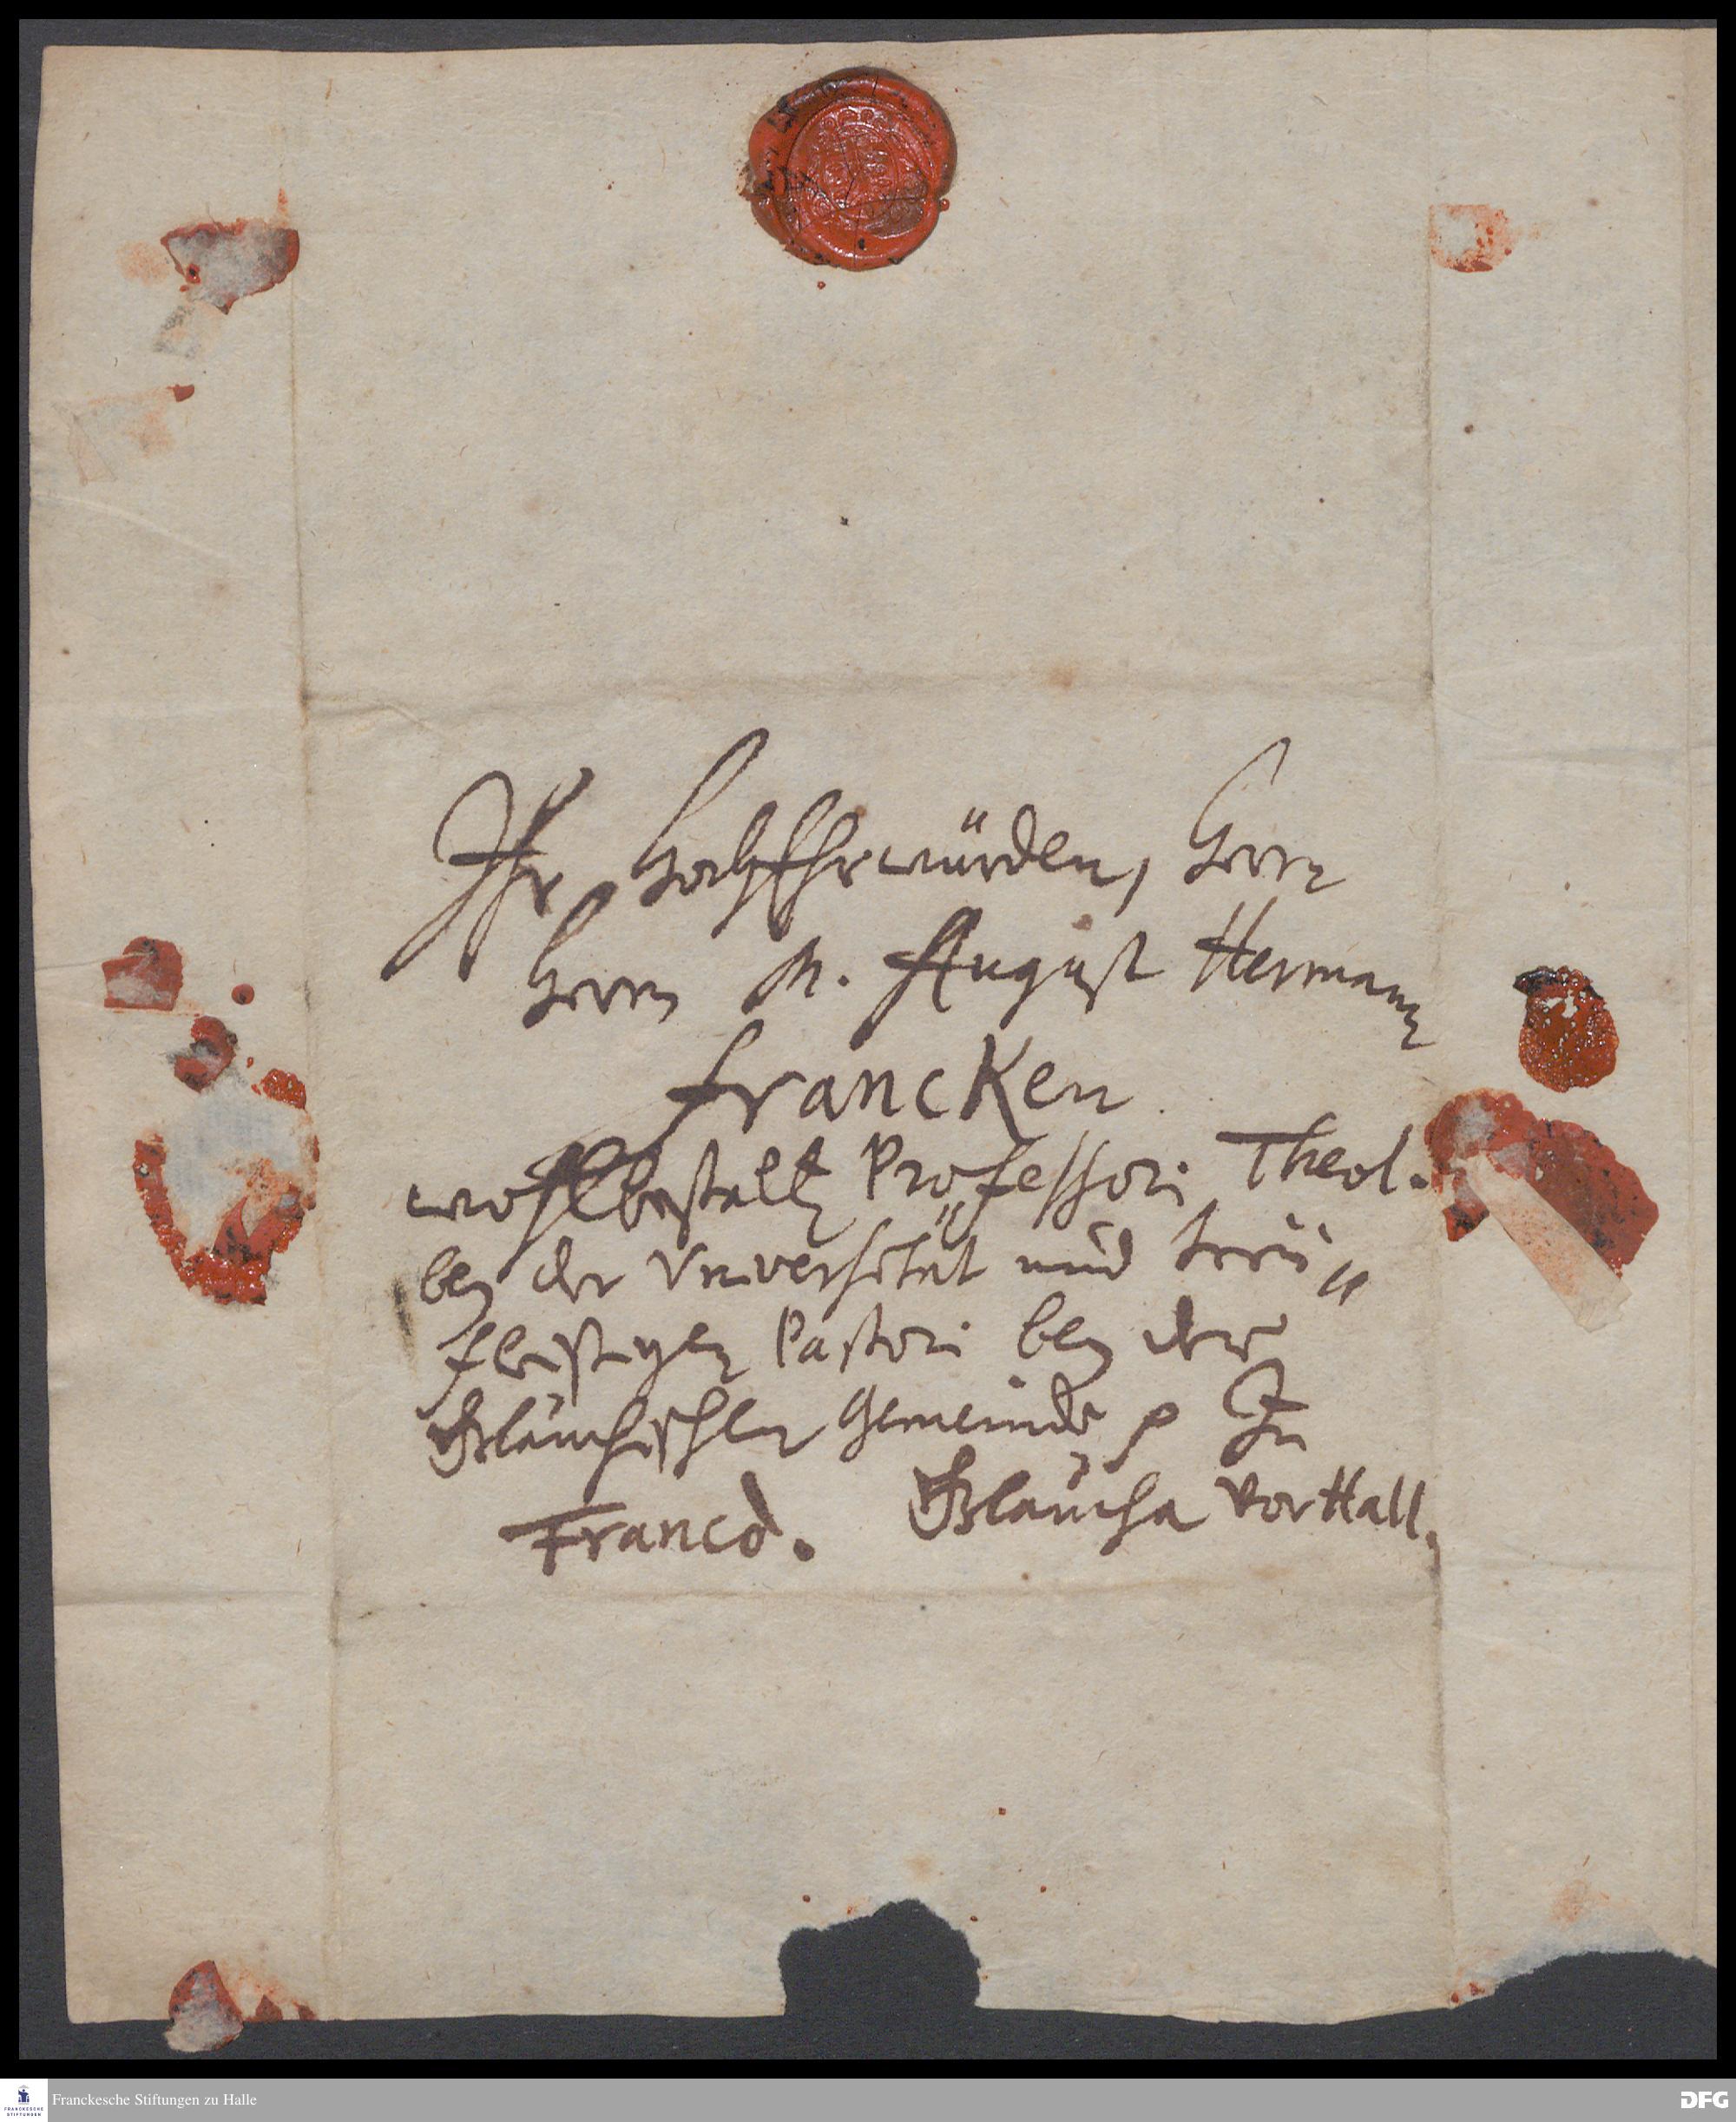 Ihr HochEhrwürden, Herrn
Herrn M. August Hermann
Francken.
wohlbestallten Professori Theol.
bey der Vniversität und treu„
fleißigen Pastori bey der
Glauchischen Gemeinde p Zu
Franco. Glaucha vor Hall.
Franckesche Stiftungen zu Halle
FRANCKESCHE
STIFTUNGEN
DFG